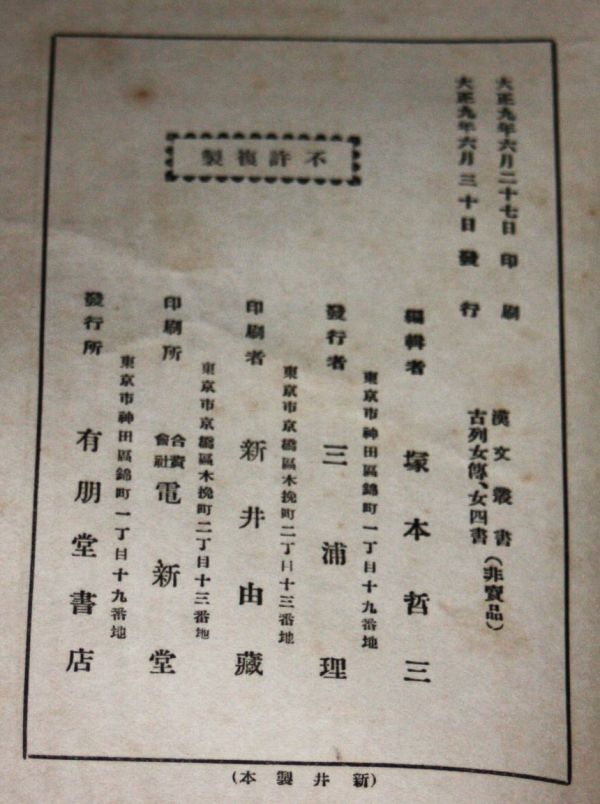 大正九年六月二十七日 印刷
大正九年六月三十日 發行
漢文叢書
古列女傳、女四書
(非賣品)
不許複製
編輯者 塚本哲三
東京市神田區錦町一丁目十九番地
發行者 三浦理
東京市京橋區木挽町二丁目十三番地
印刷者 新井由藏
東京市京橋區木挽町二丁目十三番地
印刷所 合資會社 電新堂
東京市神田區錦町一丁目十九番地
發行所 有朋堂書店
(新井製本)